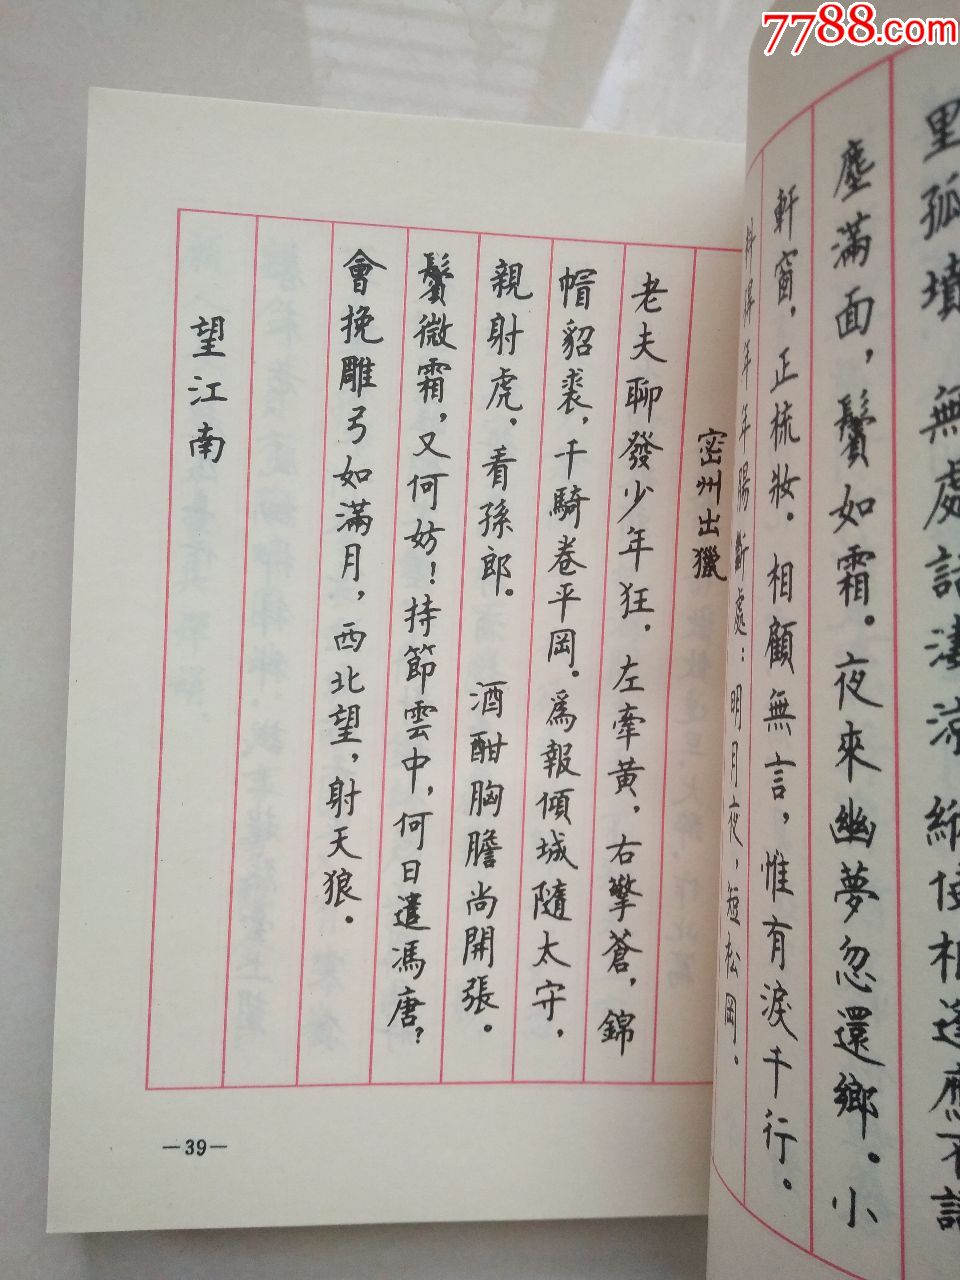 7788.com
里孤墳，無處話淒涼。縱使相逢應不識，
塵滿面，鬢如霜。夜來幽夢忽還鄉。小
軒窗，正梳妝。相顧無言，惟有淚千行。
料得年年腸斷處：明月夜，短松岡。
密州出獵
老夫聊發少年狂，左牽黃，右擎蒼，錦
帽貂裘，千騎卷平岡。爲報傾城隨太守，
親射虎，看孫郎。 酒酣胸膽尚開張。
鬢微霜，又何妨！持節雲中，何日遣馮唐？
會挽雕弓如滿月，西北望，射天狼。
望江南
—39—